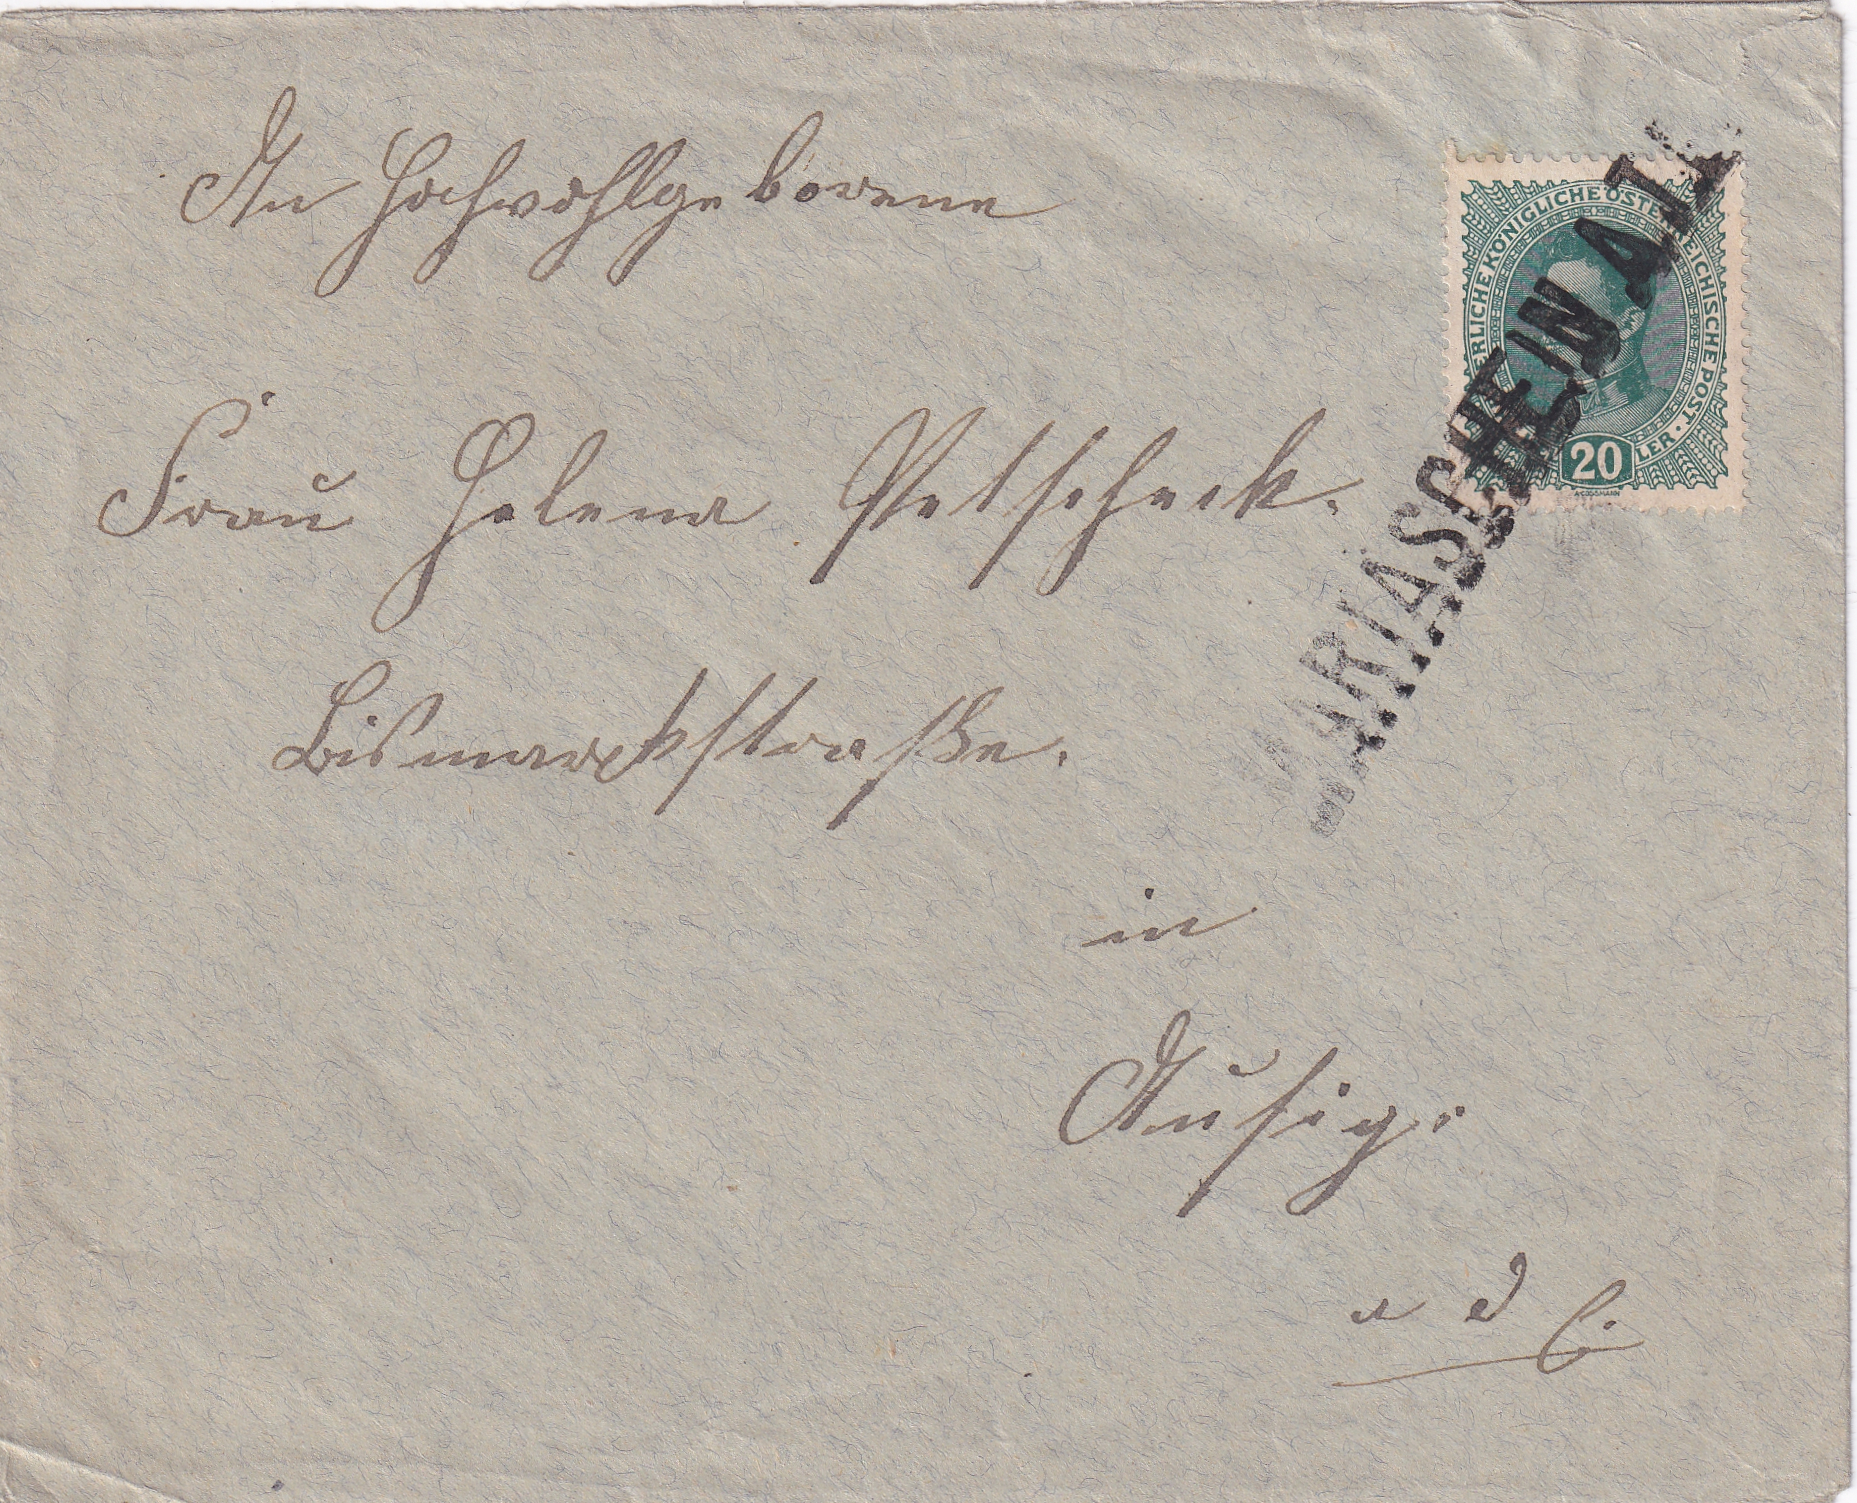 An Hochwohlgeborene
Frau Helena Petscheck.
Bismarckstraße.
in
Aussig.
a d E.
KAISERLICHE KÖNIGLICHE ÖSTERREICHISCHE POST
20
MARIASCHEIN